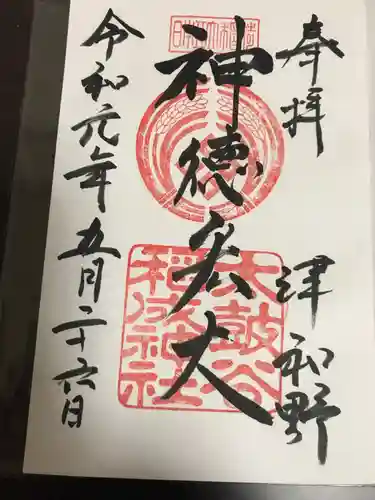 奉拝
津和野
神徳宏大
太鼓谷
稲成神社
令和元年五月二十六日